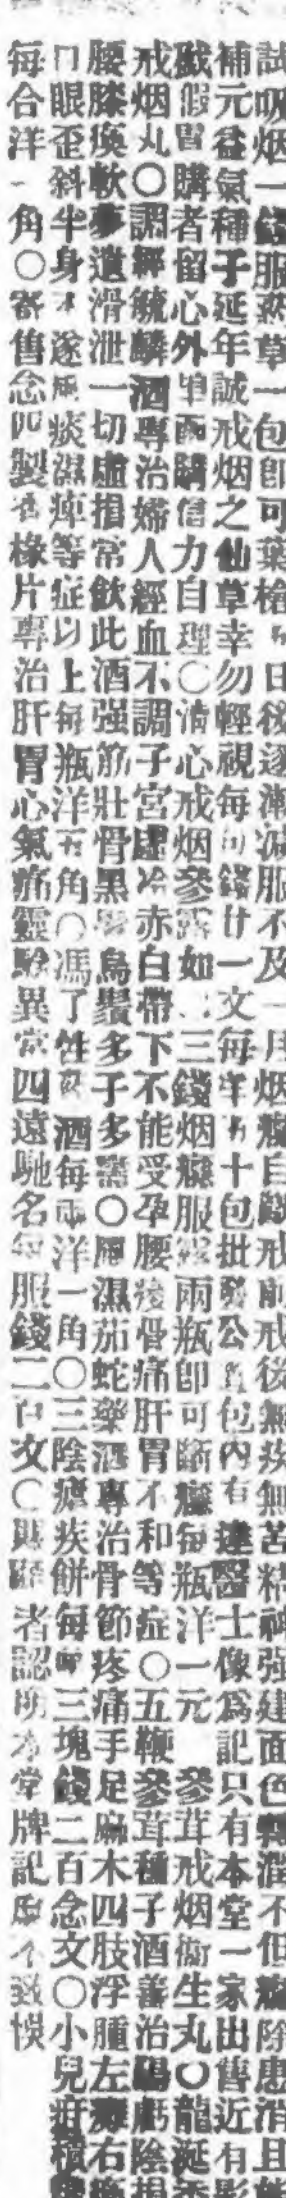 試吸烟一錢服熱草一包即可葉槍 日後逐漸减服不及一月烟癮自斷戒前戒後無疾無苦精神强建面色 潤不但癮除患消且能
補元益氣種子延年誠戒烟之仙草幸勿輕視每 錢廿一文每洋 十包批發公 包內有建醫士像爲記只有本堂一家出售近有影
戤假冒購者留心外埠函購信力自理〇清心戒烟參露如 二三錢烟癮服 露兩瓶即可斷癮每瓶洋一元 參茸戒烟衛生丸〇龍涎香
戒烟丸〇調經毓麟酒專治婦人經血不調子宮虛冷赤白帶下不能受孕腰痠骨痛肝胃不和等症〇五鞭參茸種子酒善治陽虧陰損
腰膝痠軟夢遺滑泄一切虛損常飲此酒强筋壯骨黑 烏鬚多子多壽〇風濕茄蛇藥酒專治骨節疼痛手足麻木四肢浮腫左癱右瘓
口眼歪斜半身不遂風痰濕痺等症以上每瓶洋五角〇馮了性藥酒每兩洋一角〇三陰瘧疾餅每 三塊錢二百念文〇小兒疳積
每合洋一角〇寄售念四製香椽片專治肝胃心氣痛靈騐異常四遠馳名每服錢二百文〇賜顧者認明本堂牌記庶不致悞